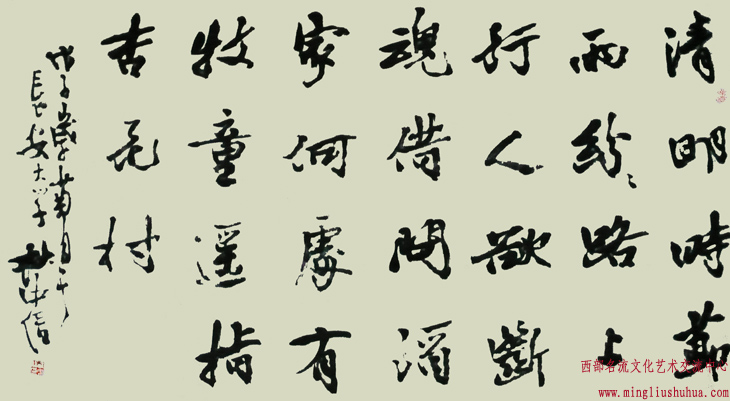 清明時節
雨紛々路上
行人欲斷
魂借問酒
家何處有
牧童遥指
杏花村
戊子歲菊月于
長安大学
西部名流文化艺术交流中心
www.mingliushuhua.com